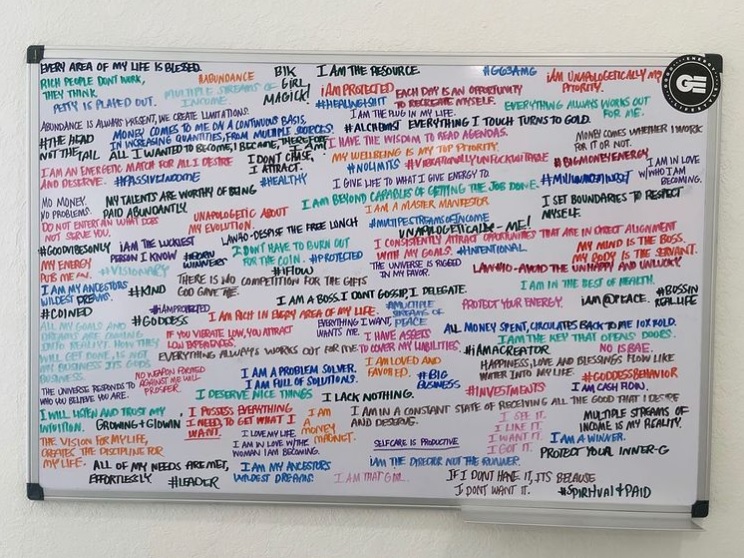 EVERY AREA OF MY LIFE IS BLESSED.
RICH PEOPLE DON'T WORK,
THEY THINK.
PETTY IS PLAYED OUT.
#ABUNDANCE
MULTIPLE STREAMS OF
INCOME.
BIK
GIRL
MAGICK!
I AM THE RESOURCE.
I AM PROTECTED
#HEALINGSHIT
EACH DAY IS AN OPPORTUNITY
TO RECREATE MYSELF.
I AM THE PLUG IN MY LIFE.
#GG3AMG
IAM UNAPOLOGETICALLY MY
PRIORITY.
EVERYTHING ALWAYS WORKS OUT
FOR ME.
ABUNDANCE IS ALWAYS PRESENT, WE CREATE LIMITATIONS.
#THE HEAD
NOT THE TAIL
MONEY COMES TO ME ON A CONTINUOUS BASIS,
IN INCREASING QUANTITIES, FROM MULTIPLE SOURCES.
ALL I WANTED TO BECOME, I BECAME, THEREFORE I AM
#ALCHEMIST EVERYTHING I TOUCH TURNS TO GOLD.
I HAVE THE WISDOM TO READ AGENDAS.
MONEY COMES WHETHER I WORK
FOR IT OR NOT.
I AM AN ENERGETIC MATCH FOR ALL I DESIRE
AND DESERVE.
#PASSIVEINCOME
I DON'T CHASE,
I ATTRACT.
#HEALTHY
MY WELLBEING IS MY TOP PRIORITY.
#NOLIMITS
#VIBRATIONALLYUNFUCKWITABLE
#BIGMONEYENERGY
I AM IN LOVE
W/WHO I AM
BECOMING.
I GIVE LIFE TO WHAT I GIVE ENERGY TO.
MO MONEY,
NO PROBLEMS.
MY TALENTS ARE WORTHY OF BEING
PAID ABUNDANTLY.
I AM BEYOND CAPABLE OF GETTING THE JOB DONE.
I AM A MASTER MANIFESTOR
I SET BOUNDARIES TO RESPECT
MYSELF.
DO NOT ENTERTAIN WHAT DOES
NOT SERVE YOU.
UNAPOLOGETIC ABOUT
MY EVOLUTION.
LAW 40 - DESPISE THE FREE LUNCH
#MULTIPLESTREAMSOFINCOME
UNAPOLOGETICALLY - ME!
#GOODVIBESONLY
IAM THE LUCKIEST
PERSON I KNOW
#BORN
WINNERS
I DON'T HAVE TO BURN OUT
FOR THE COIN.
#PROTECTED
I CONSISTENTLY ATTRACT OPPORTUNITIES THAT ARE IN DIRECT ALIGNMENT
WITH MY GOALS.
#INTENTIONAL
MY MIND IS THE BOSS.
MY BODY IS THE SERVANT.
MY ENERGY
#VISIONARY
#IFLOW
THE UNIVERSE IS RIGGED
IN MY FAVOR.
LAW #10 - AVOID THE UNHAPPY AND UNLUCKY.
I AM MY ANCESTORS
WILDEST DREAMS.
#KIND
THERE IS NO COMPETITION FOR THE GIFTS
GOD GAVE ME.
I AM IN THE BEST OF HEALTH.
I AM A BOSS. I DON'T GOSSIP, I DELEGATE.
#BOSSIN
REAL LIFE
#COINED
#IAMPROTECTED
#GODDESS
I AM RICH IN EVERY AREA OF MY LIFE.
#MULTIPLE
STREAMS OF
PEACE
PROTECT YOUR ENERGY.
IAM@PEACE.
ALL MY GOALS AND
DREAMS ARE COMING
INTO REALITY. HOW THEY
WILL GET DONE, IS NOT
MY BUSINESS. ITS GODS
BUSINESS.
IF YOU VIBRATE LOW, YOU ATTRACT
LOW EXPERIENCES.
EVERYTHING I WANT,
WANTS ME.
ALL MONEY SPENT, CIRCULATES BACK TO ME 10X FOLD.
I AM THE KEY THAT OPENS DOORS.
EVERYTHING ALWAYS WORKS OUT FOR ME
I HAVE ASSETS
TO COVER MY LIABILITIES.
#IAMACREATOR
NO IS BAE.
NO WEAPON FORMED
AGAINST ME WILL
PROSPER.
I AM A PROBLEM SOLVER.
I AM FULL OF SOLUTIONS.
I AM LOVED AND
FAVORED.
#BIG
BUSINESS
HAPPINESS, LOVE AND BLESSINGS FLOW LIKE
WATER INTO MY LIFE.
#GODDESSBEHAVIOR
THE UNIVERSE RESPONDS TO
WHO YOU BELIEVE YOU ARE.
I DESERVE NICE THINGS
I LACK NOTHING.
#INVESTMENTS
I AM CASH FLOW.
I WILL LISTEN AND TRUST MY
INTUITION.
GROWING + GLOWIN
I POSSESS EVERYTHING
I NEED, TO GET WHAT I
WANT.
I AM
A
MONEY
MAGNET.
I AM IN A CONSTANT STATE OF RECEIVING ALL THE GOOD THAT I DESIRE
AND DESERVE.
I SEE IT.
I LIKE IT.
I WANT IT.
I GOT IT.
MULTIPLE STREAMS OF
INCOME IS MY REALITY.
I AM A WINNER.
PROTECT YOUR INNER-G
THE VISION FOR MY LIFE,
CREATES THE DISCIPLINE FOR
MY LIFE.
I LOVE MY LIFE.
I AM IN LOVE W/THE
WOMAN I AM BECOMING.
SELFCARE IS PRODUCTIVE
ALL OF MY NEEDS ARE MET,
EFFORTLESSLY
#LEADER
I AM MY ANCESTORS
WILDEST DREAMS.
IAM THE DIRECTOR NOT THE RUNNER.
I AM THAT GIRL
IF I DON'T HAVE IT, ITS BECAUSE
I DON'T WANT IT.
#SPIRITUAL+PAID
GE